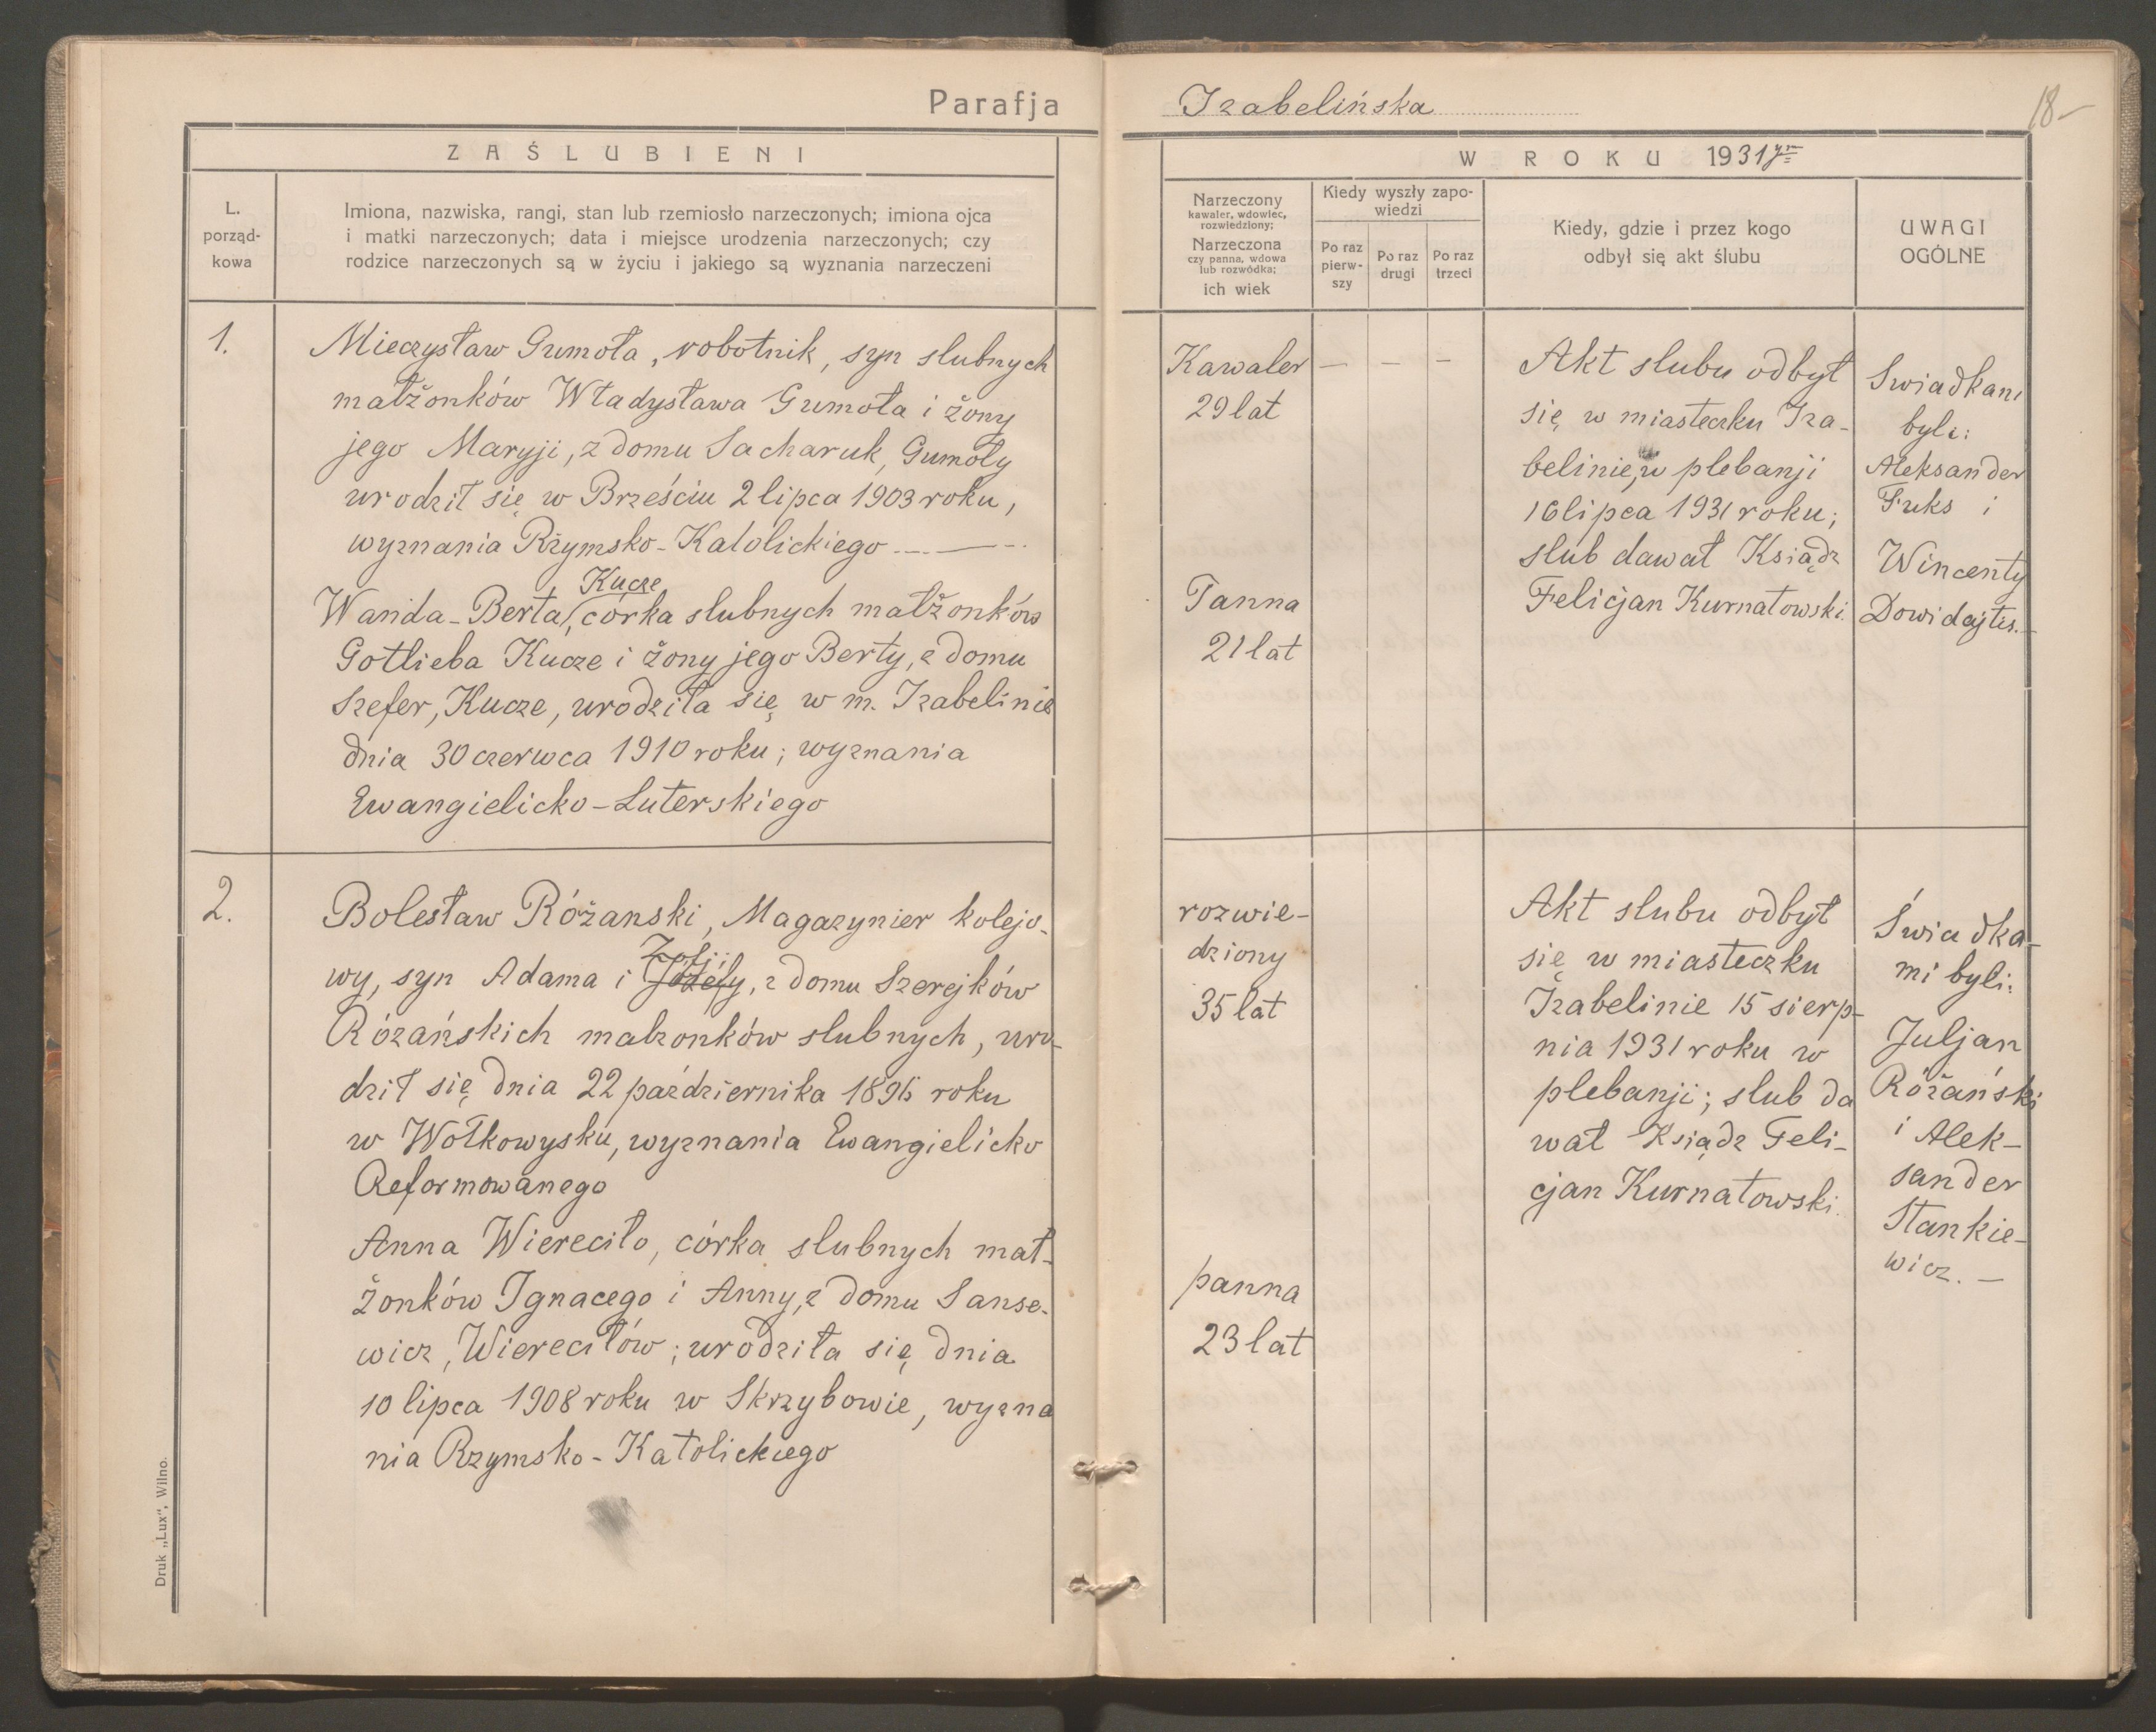 Parafja
ZAŚLUBIENI
L.
porząd-
kowa
Imiona, nazwiska, rangi, stan lub rzemiosło narzeczonych; imiona ojca
i matki narzeczonych; data i miejsce urodzenia narzeczonych; czy
rodzice narzeczonych są w życiu i jakiego są wyznania narzeczeni
1.
Mieczysław Gumoła, robotnik, syn slubnych
małżonków Władysława Gumoła i żony
jego Maryji, z domu Sacharuk, Gumoły
urodził się w Brześciu 2 lipca 1903 roku,
wyznania Rzymsko-Katolickiego
Kucze
Wanda-Berta, córka slubnych małżonków
Gotlieba Kucze i żony jego Berty, z domu
Szefer, Kucze, urodziła się w m. Izabelinie
dnia 30 czerwca 1910 roku; wyznania
Ewangielicko-Luterskiego
2.
Bolesław Różanski, Magazynier kolejo-
Zofji
wy, syn Adama i Józefy, z domu Szerejków
Rózańskich malzonków slubnych, uro-
dził się dnia 22 października 1896 roku
w Wołkowysku, wyznania Ewangielicko
Reformowanego
Anna Wiereciło, córka slubnych mał-
żonków Ignacego i Anny, z domu Sanse-
wicz, Wierecilów; urodziła się dnia
10 lipca 1908 roku w Skrzybowie, wyzna
nia Rzymsko-Katolickiego
Druk „Lux“, Wilno.
Izabelińska
18-
W ROKU 1931 ym
Narzeczony
kawaler, wdowiec,
rozwiedziony;
Narzeczona
czy panna, wdowa
lub rozwódka;
ich wiek
Kiedy wyszły zapo-
wiedzi
Po raz
pierw-
szy
Po raz
drugi
Po raz
trzeci
Kiedy, gdzie i przez kogo
odbył się akt ślubu
UWAGI
OGÓLNE
Kawaler
29 lat
— — —
Panna
21 lat
Akt slubu odbył
się w miasteczku Iza-
belinie, w plebanji
16 lipca 1931 roku;
slub dawał Ksiądz
Felicjan Kurnatowski.
Swiadkami
byli:
Aleksander
Fuks i
Wincenty
Dowidajtis.—
rozwie-
dziony
35 lat
panna
23 lat
Akt slubu odbył
się w miasteczku
Izabelinie 15 sierp-
nia 1931 roku w
plebanji; slub da
wał Ksiądz Feli-
cjan Kurnatowski.
Świadka-
mi byli:
Juljan
Różański
i Alek-
sander
Stankie-
wicz.—